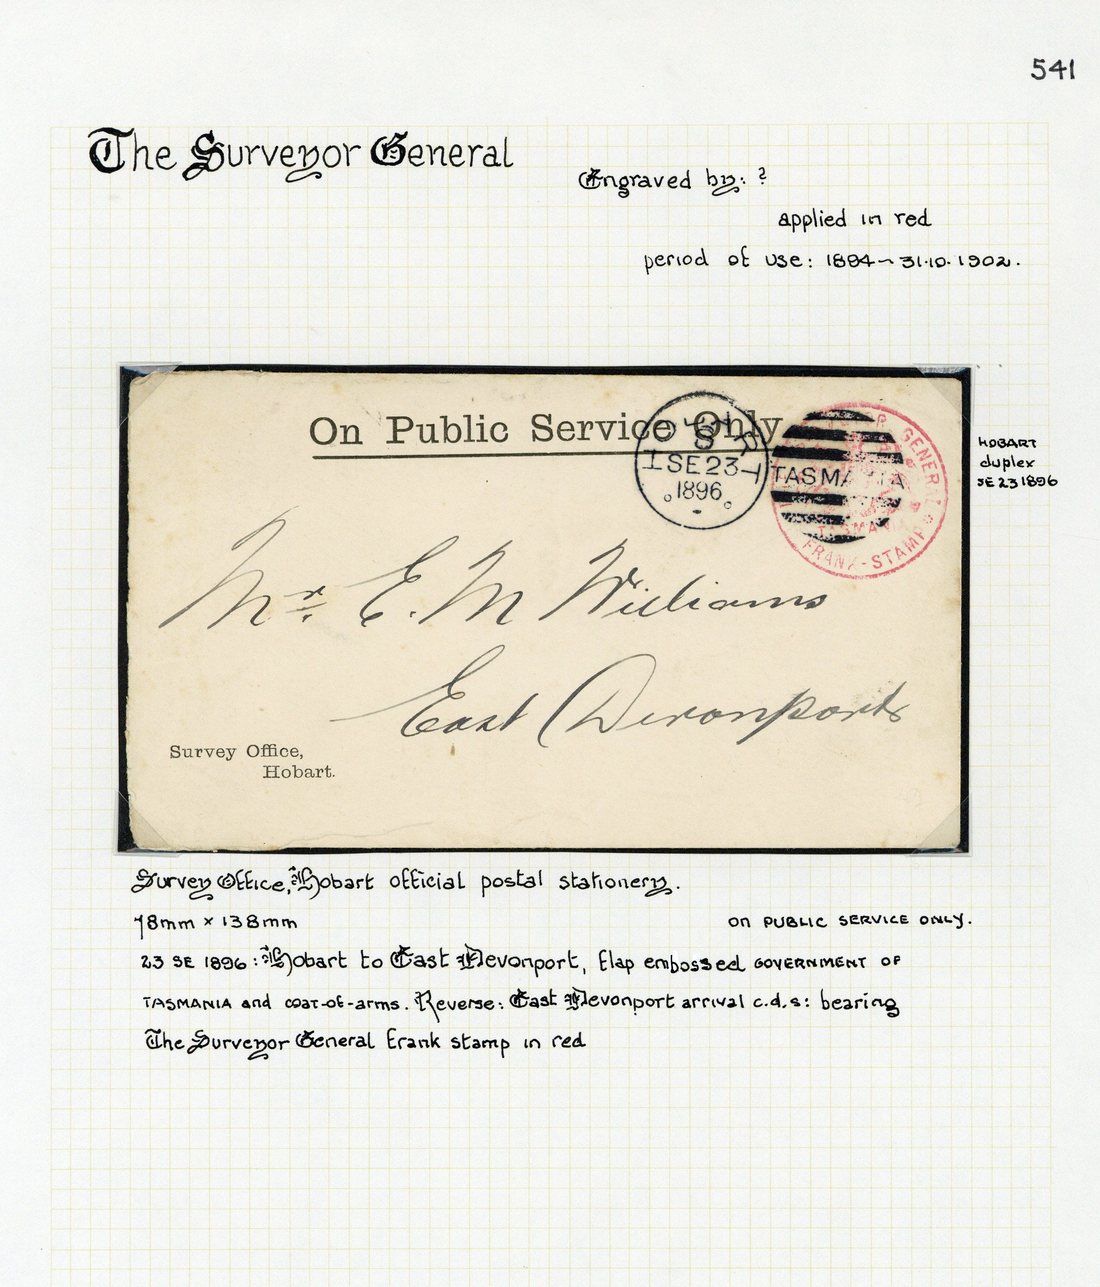 541
The Surveyor General
Engraved by: ?
applied in red
period of use: 1894 ~ 31.10.1902.
On Public Service Only
HOBART
8
SE 23
1896
TASMANIA
GENERAL
TASMANIA
FRANK-STAMP
HOBART
duplex
SE 23 1896
Mr. E. M Williams
East Devonport
Survey Office,
Hobart.
Survey Office, Hobart official postal stationery.
78mm x 138mm
ON PUBLIC SERVICE ONLY.
23 SE 1896: Hobart to East Devonport, flap embossed GOVERNMENT OF
TASMANIA and coat-of-arms. Reverse: East Devonport arrival c.d.s: bearing
The Surveyor General frank stamp in red